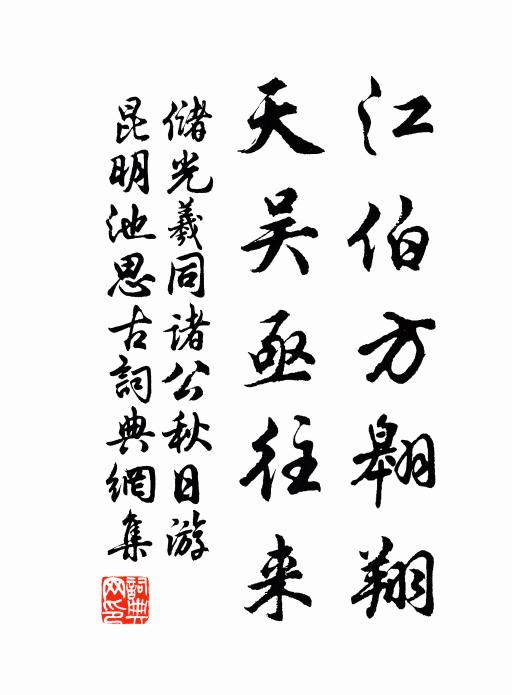 江伯方翱翔
天吴亟往来
儲光羲同諸公秋日游
昆明池思古詞典網集
詞典網印